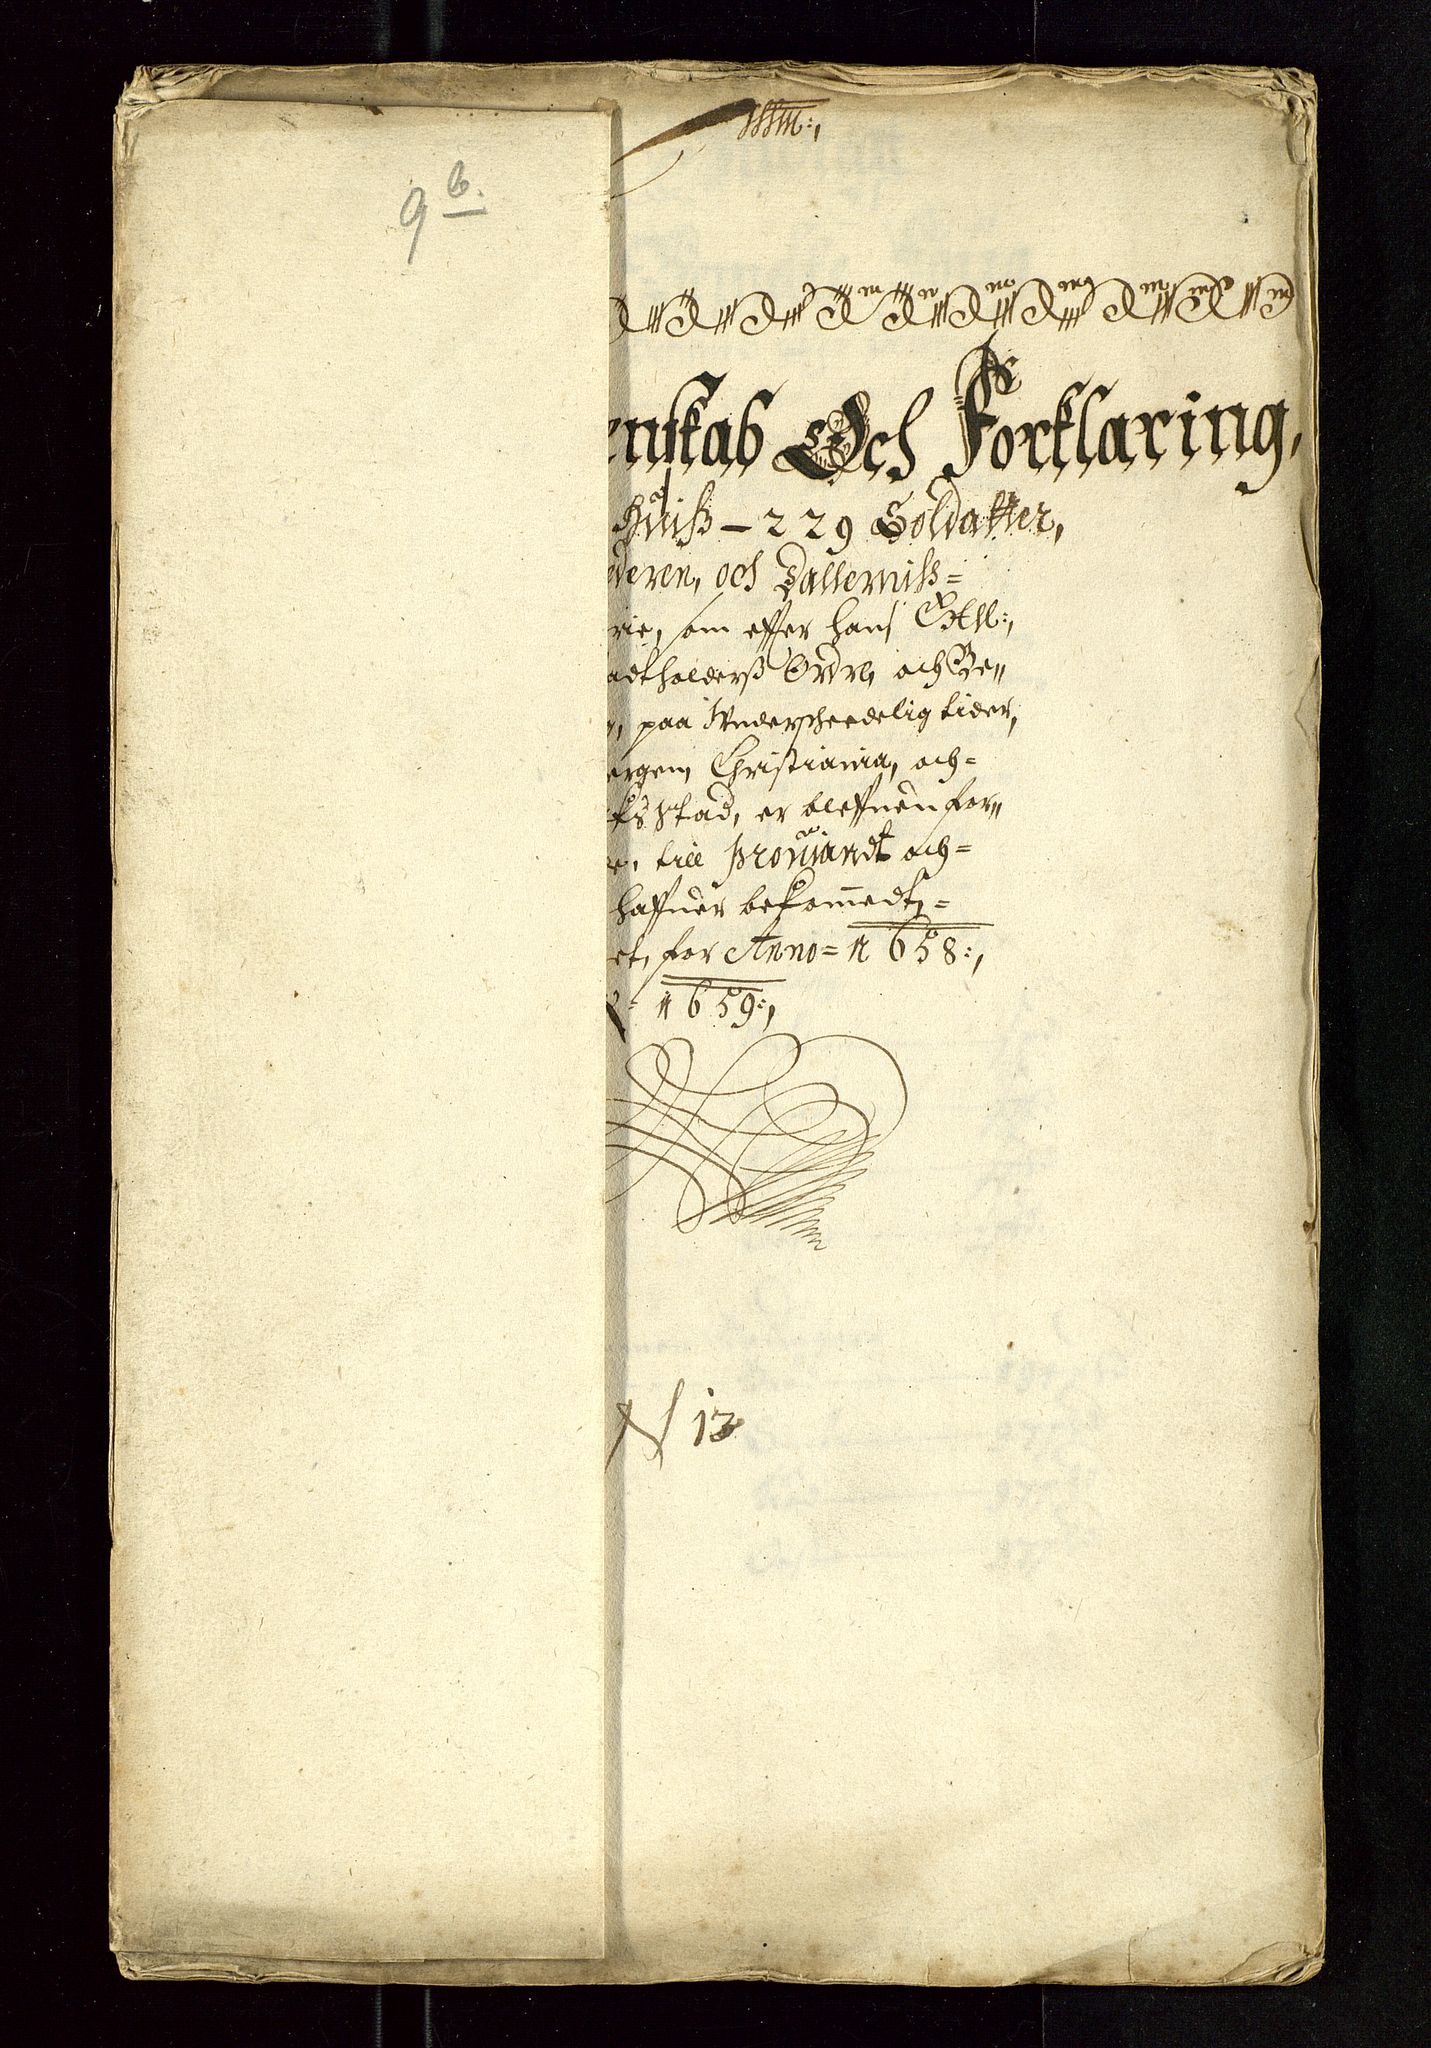 9 b.
enskab Och Forklaring,
Huiß - 229 Soldatter,
ederen, och Dallerniß=
rie, som effter hans Exll:,
adtholderß Ordre, och Be„
paa Underscheedelig tider,
ergen, Christiania, och=
Stad, er bleffuen for„
till Prouiandt och=
haffuer bekommedt,=
et, for Anno= 1658:,
1659:,
N 13